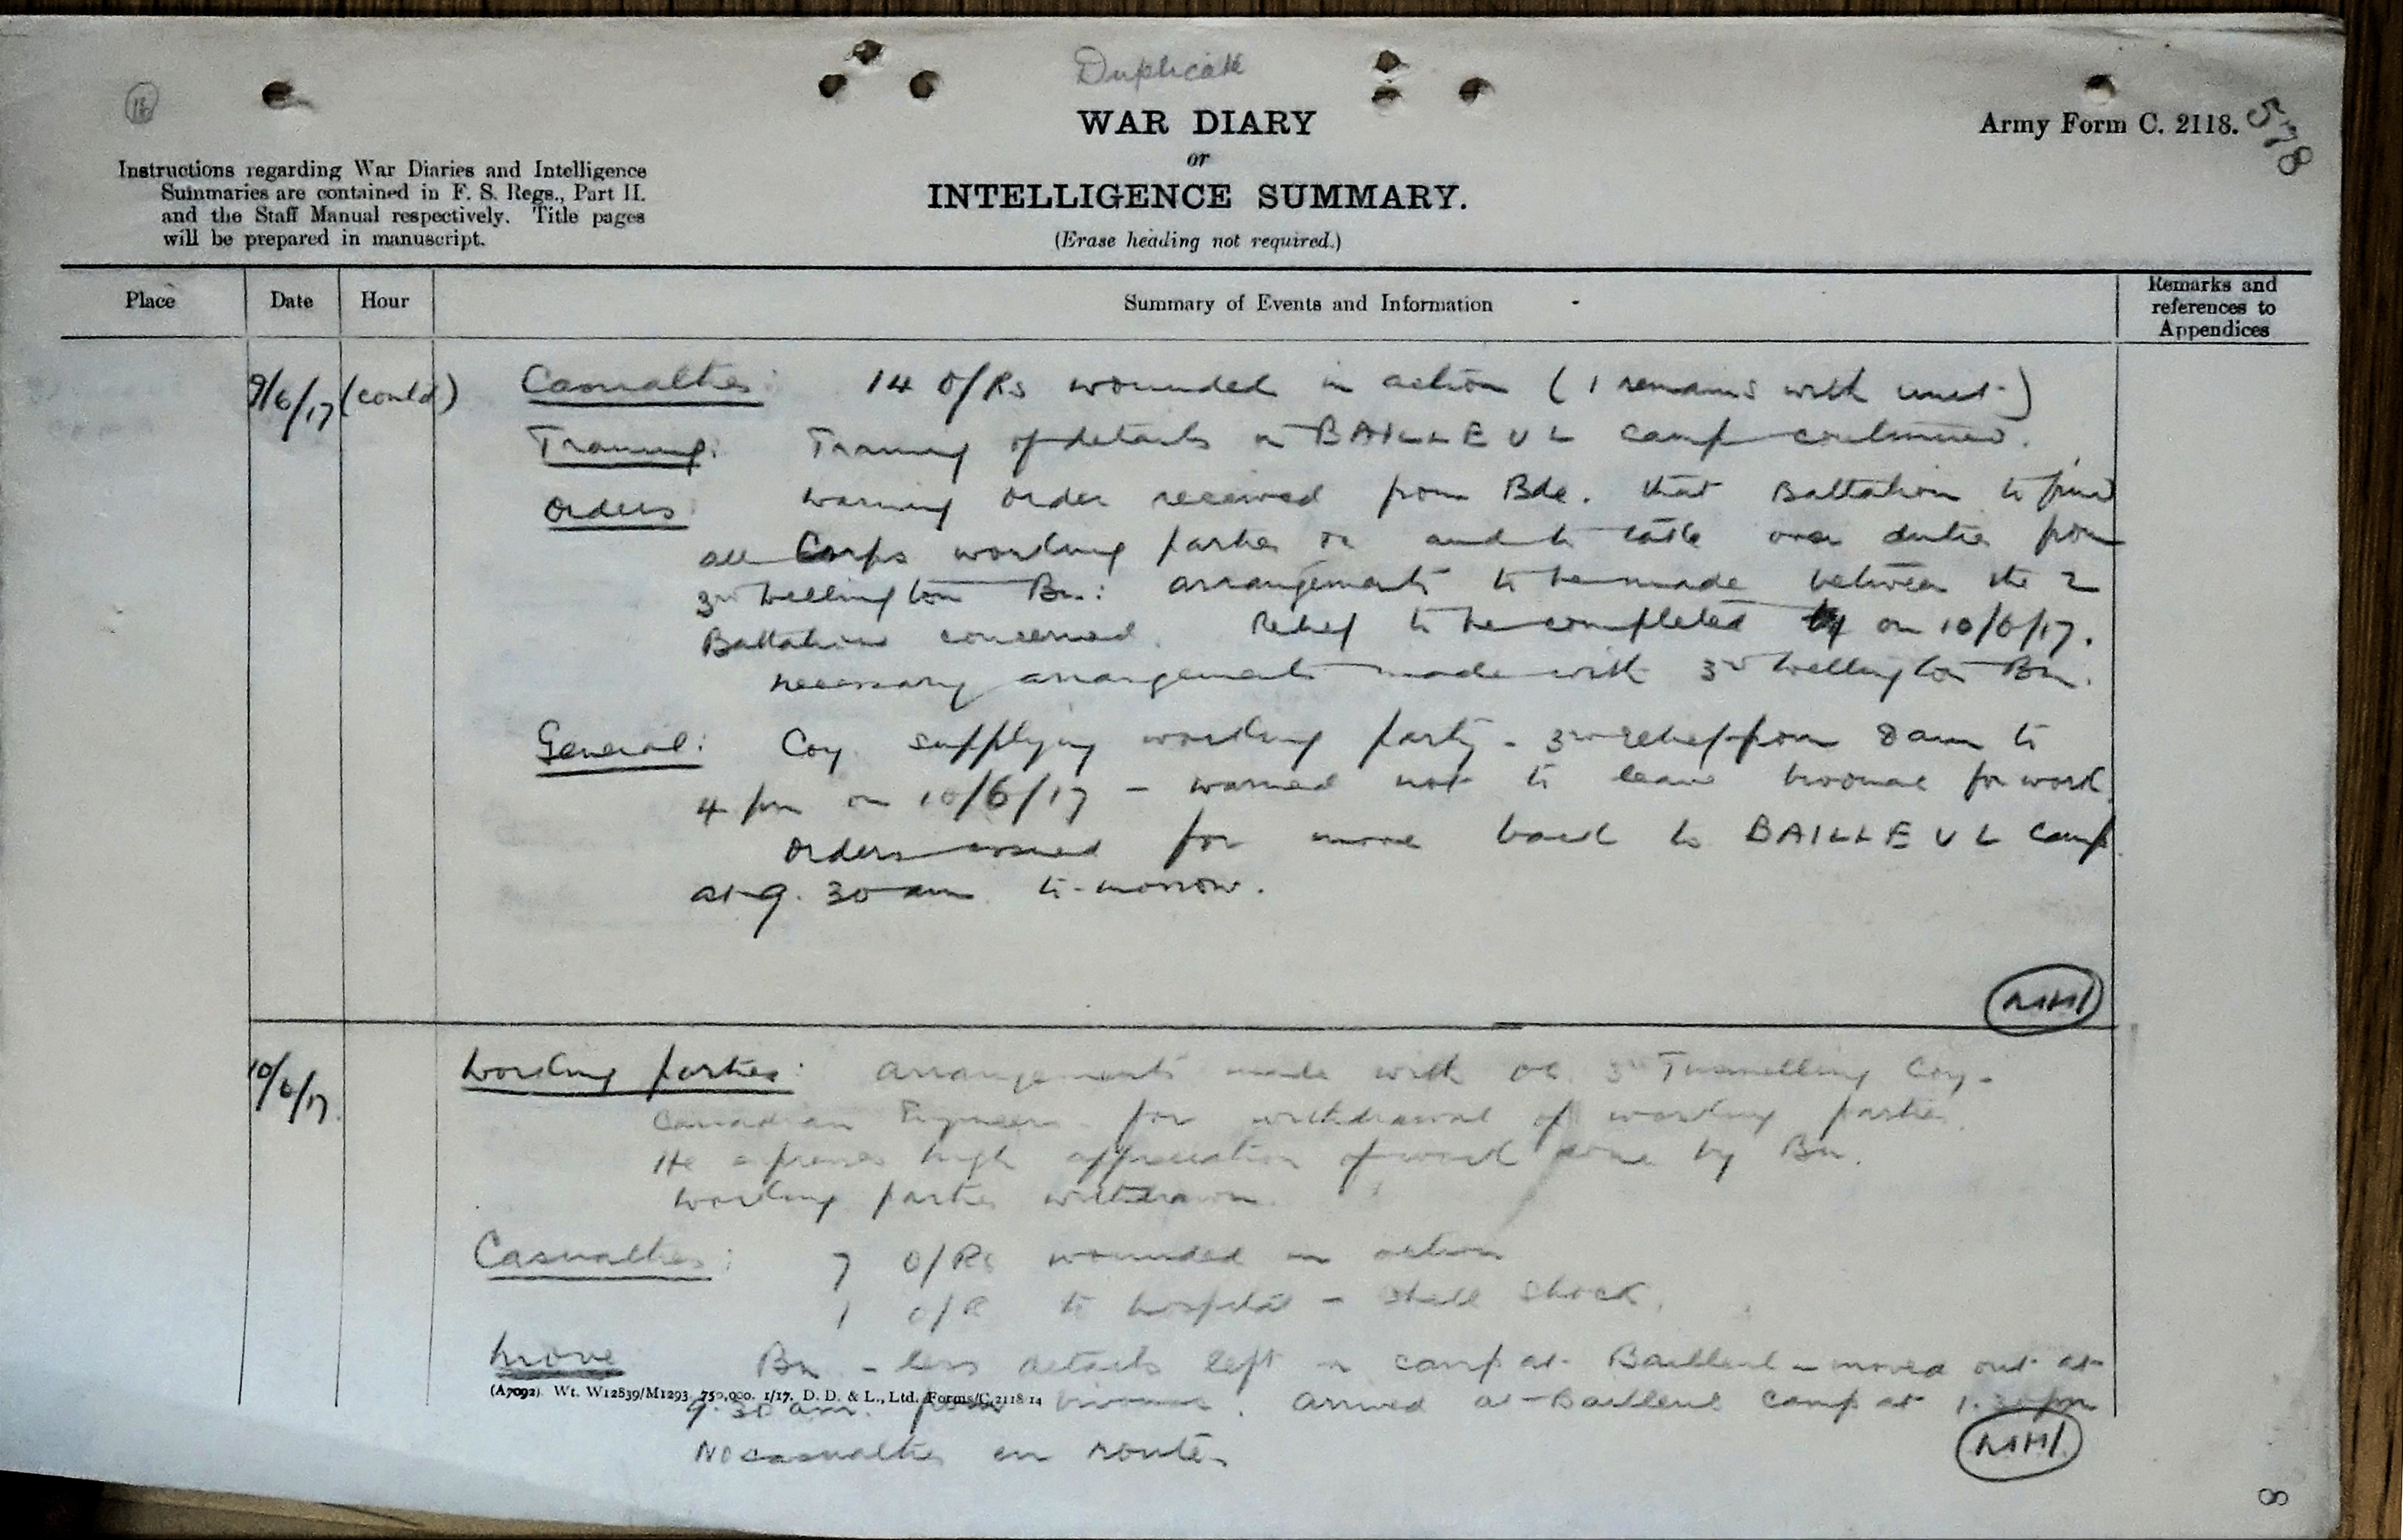 Duplicate
WAR DIARY
or
INTELLIGENCE SUMMARY.
(Erase heading not required.)
Army Form C. 2118.
578
Instructions regarding War Diaries and Intelligence
Summaries are contained in F. S. Regs., Part II.
and the Staff Manual respectively. Title pages
will be prepared in manuscript.
Place Date Hour Summary of Events and Information Remarks and references to Appendices
9/6/17 (contd) Casualties: 14 O/Rs wounded in action (1 remains with unit.)
Training: Training of details in BAILLEUL camp continued.
Orders: Warning order received from Bde. that Battalion to find
all Corps working parties and to take over duties from
3rd Wellington Bn: arrangements to be made between the 2
Battalions concerned. Relief to be completed on 10/6/17.
Necessary arrangements made with 3rd Wellington Bn.
General: Coy. supplying working party - 3rd relief from 8 am to
4 pm on 10/6/17 - warned not to leave bivouac for work.
Orders issued for move back to BAILLEUL Camp
at 9.30 am to-morrow.
10/6/17. Working parties: Arrangements made with OC. 3rd Tunnelling Coy.
Canadian Engineers for withdrawal of working parties.
He expresses high appreciation of work done by Bn.
Working parties withdrawn.
Casualties: 7 O/Rs wounded in action
1 O/R to hospital - shell shock.
Move Bn - less details left in camp at Bailleul - moved out at
(A7092) Wt. W12839/M1293 750,000. 1/17. D. D. & L., Ltd. Forms/C.2118 14
9.30 am. from bivouac. Arrived at Bailleul camp at 1.30 pm
No casualties en route.
8